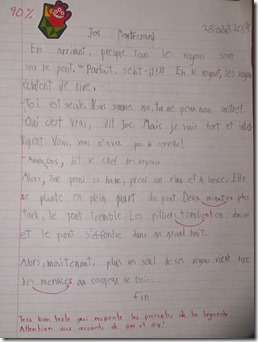 90%
Jos Montferrand
En arrivant, presque tous les voyous sont
sur le pont. - Parfait, se dit-il!!! En le voyant, les voyous
éclatent de rire.
- Toi est seul. Nous sommes
- Oui c'est vrai, dit Joe. Mais je suis fort et intel-
ligent. Vous, vous n'avez pas de cervelle!
- Avançons, dit le chef des voyous.
Alors, Jos prend sa hache, prend un élan et la lance. Elle
se plante en plein quart du pont. Deux minutes plus
tard, le pont tremble. Les pilliers tombent en
et le pont s'effondre dans un grand bruit.
Alors, maintenant, plus un seul de ses voyous vient faire
des menaces au coupeur de bois.
Fin
Très bon texte qui respecte les préceptes de la légende.
Attention aux accords de